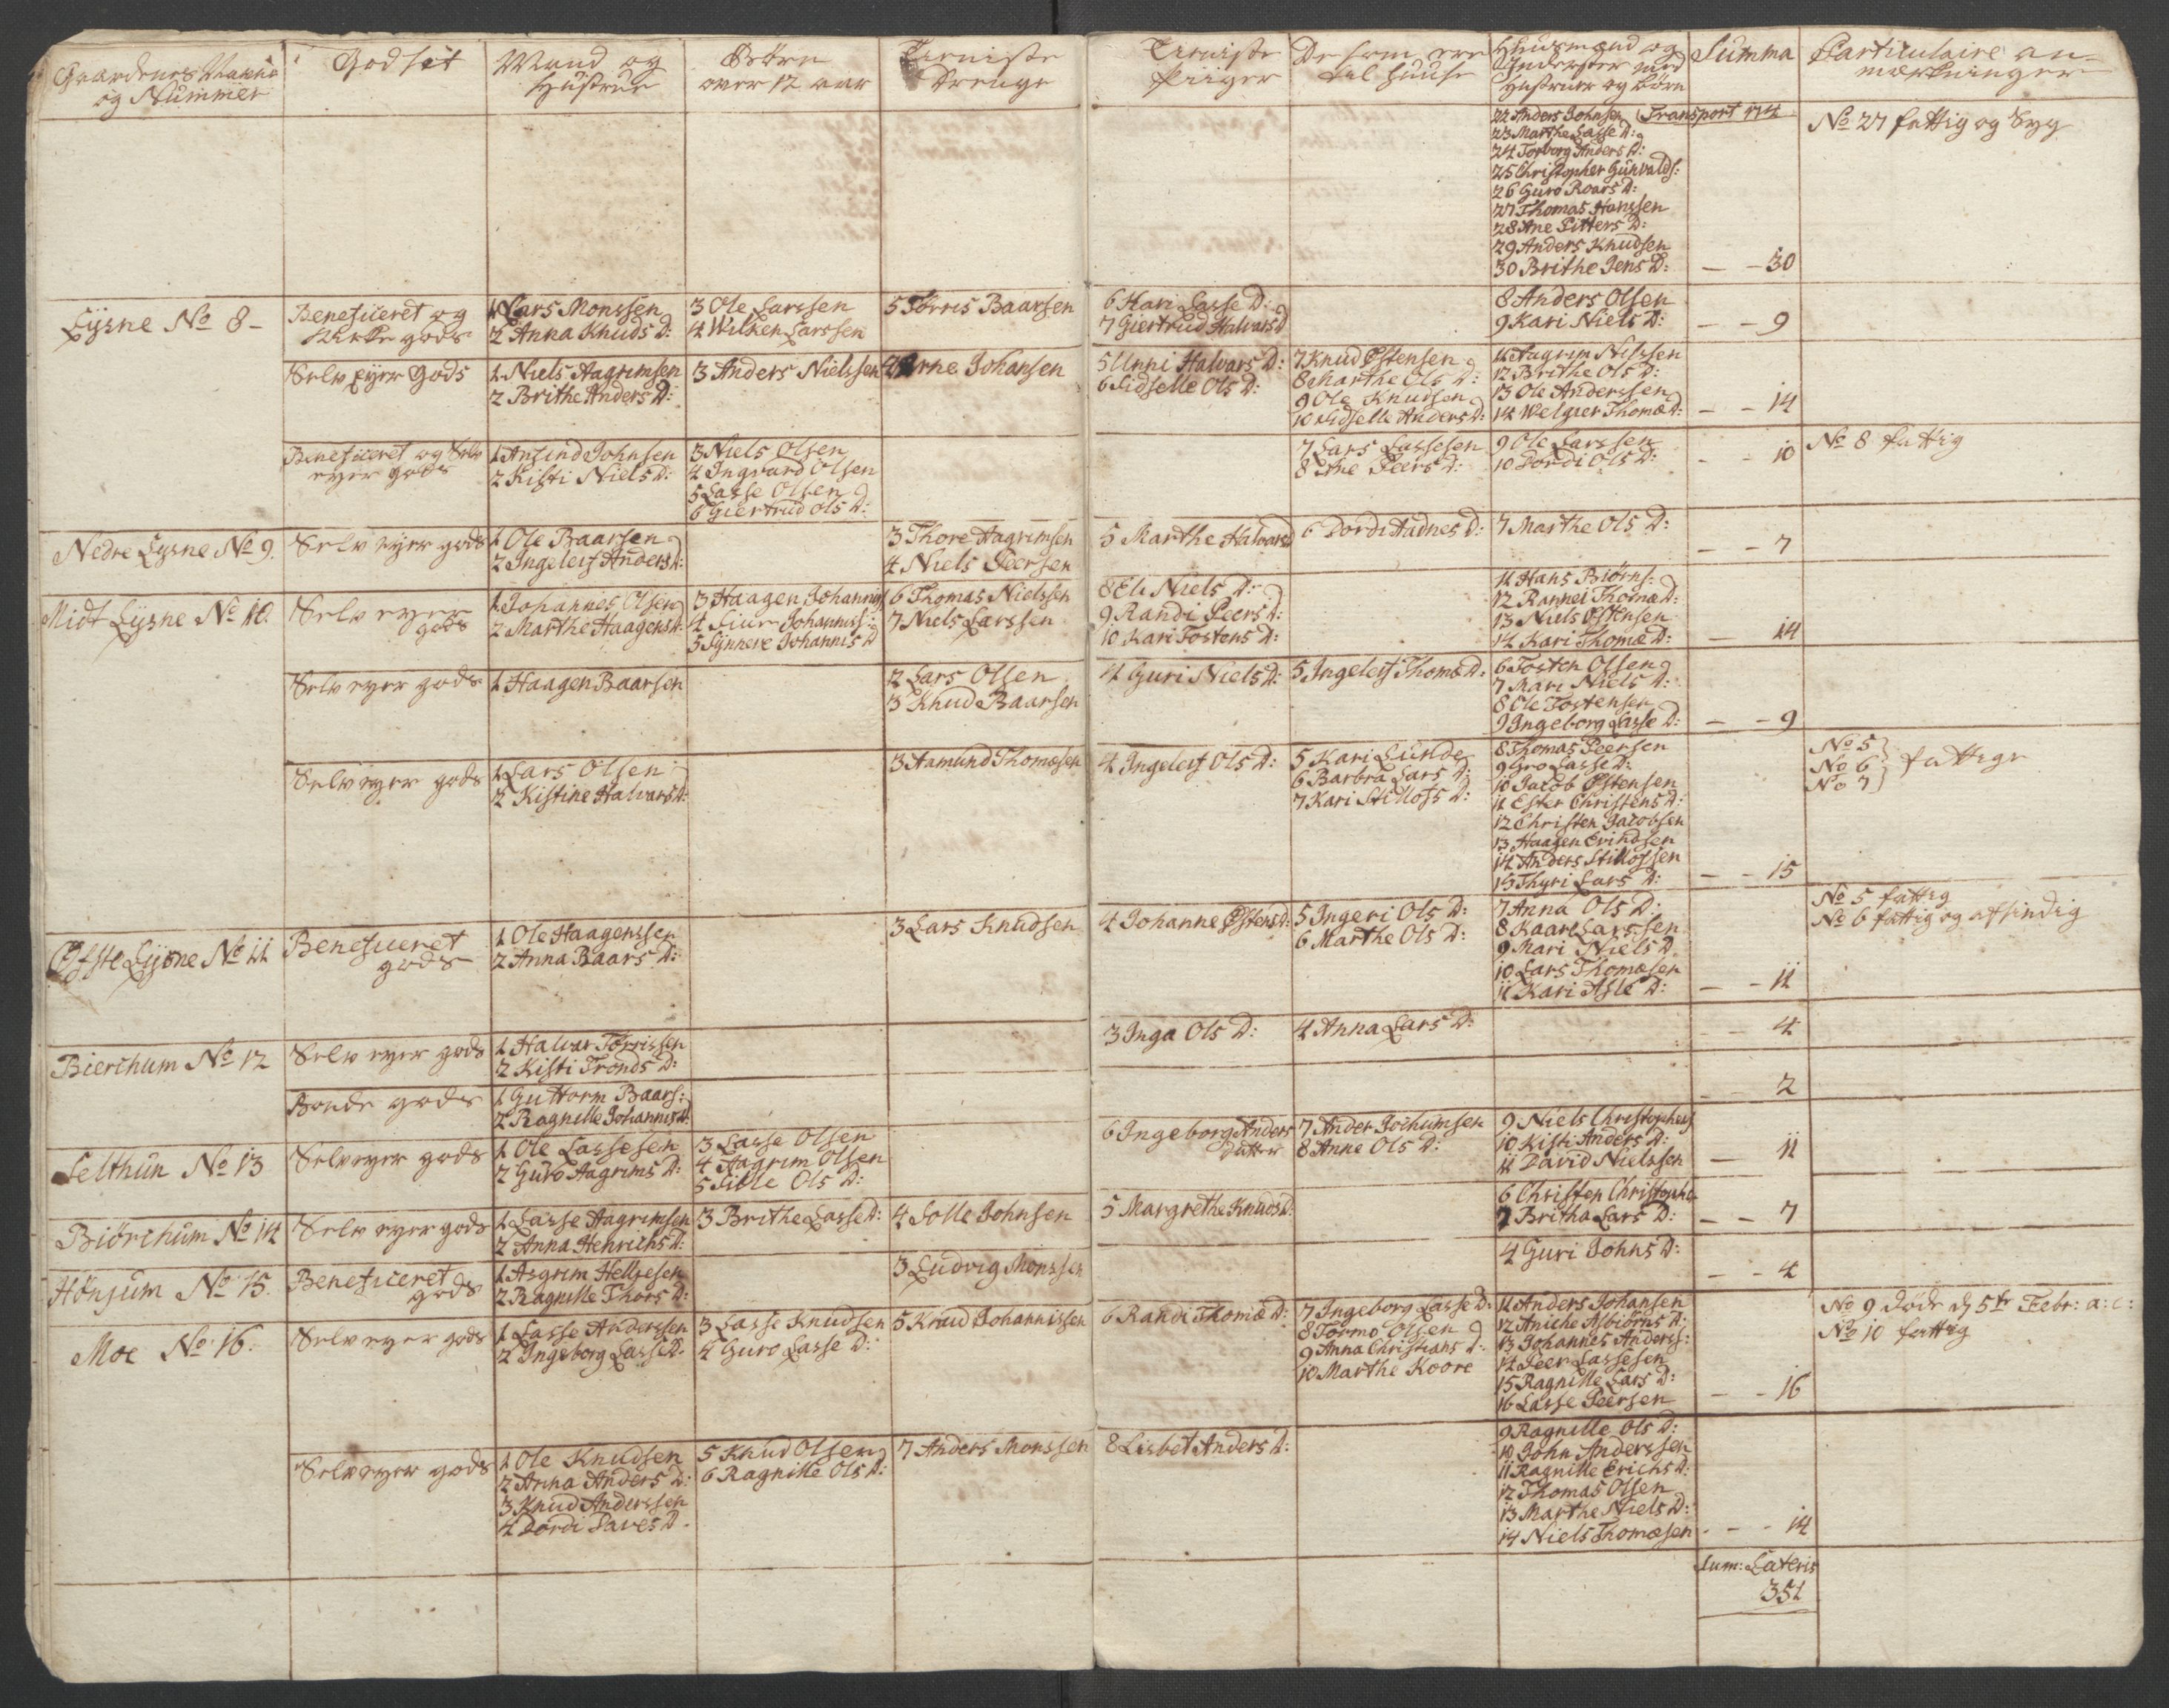 Gaardenes Nafne og Nummer
Godset
Mand og Hustrue
Børn over 12 aar
Tieniste Drenge
Tieniste Piiger
De som ere til huuse
Huusmænd og Inderster med Hustruer og Børn
Summa
Particulaire anmærkninger
22 Anders Johnsen
Transport 174
23 Marthe Lasse D:
24 Torborg Anders D:
25 Christopher Gunvalds:
26 Guro Roars D:
27 Thomas Hanssen
28 Ane Pitters D:
29 Anders Knudsen
30 Brithe Jens D:
- - 30
No 27 fattig og Syg
Lysne No 8 -
Beneficeret og Kirke gods
1 Lars Monssen
2 Anna Knuds D:
3 Ole Larssen
4 Wilken Larssen
5 Torris Baarsen
6 Kari Lasse D:
7 Giertrud Halvars D
8 Anders Olsen
9 Kari Niels D:
- - 9
Selv Eyer Gods
1 Niels Aagrimsen
2 Brithe Anders D:
3 Anders Nielssen
4 Arne Johansen
5 Unni Halvars D:
6 Sidselle Ols D:
7 Knud Østensen
8 Marthe Ols D:
9 Ole Knudsen
10 Sidselle Anders D:
11 Aagrim Nilssen
12 Brithe Ols D:
13 Ole Anderssen
14 Welgier Thomæ D:
- - 14
Beneficeret og Selv eyer gods
1 Anfind Johnsen
2 Kisti Niels D:
3 Niels Olsen
4 Ingvard Olsen
5 Lasse Olsen
6 Giertrud Ols D:
7 Lars Lassesen
8 Ane Peers D:
9 Ole Larssen
10 Dordi Ols D:
- - 10
No 8 fattig
Nedre Lysne No 9.
Selv eyer gods
1 Ole Baarsen
2 Ingeleif Anders D:
3 Thore Aagrimsen
4 Niels Peersen
5 Marthe Halvars D
6 Dordi Aadnes D:
7 Marthe Ols D:
- - 7
Midt Lysne No 10.
Selv eyer gods
1 Johannes Olsen
2 Marthe Haagens D:
3 Haagen Johannis
4 Siur Johanniss:
5 Synneve Johannis D
6 Thomas Nielssen
7 Niels Larssen
8 Eli Niels D:
9 Randi Peers D:
10 Kari Tostens D:
11 Hans Biørns:
12 Rannei Thomæ D:
13 Niels Østensen
14 Kari Thomæ D:
- 14
Selv eyer gods
1 Haagen Baarsen
2 Lars Olsen
3 Knud Baarsen
4 Guri Niels D:
5 Ingeleif Thomæ D:
6 Tosten Olsen
7 Mari Niels D:
8 Ole Tostensen
9 Ingeborg Lasse D:
- - 9
Selv eyer gods
1 Lars Olsen
2 Kistine Halvars D:
3 Aamund Thomesen
4 Ingeleif Ols D:
5 Kari Lunde
6 Barbra Lars D:
7 Kari Stillofs D:
8 Thomas Peersen
9 Gro Lasse D:
10 Jacob Østensen
11 Ester Christens D:
12 Christen Jacobsen
13 Haagen Evindsen
14 Anders Stillofsen
15 Thyri Lars D:
- - 15
No 5
No 6 fattige
No 7
Øfste Lysne No 11
Beneficeret gods
1 Ole Haagenssen
2 Anna Baars D:
3 Lars Knudsen
4 Johanne Østens D:
5 Ingeri Ols D:
6 Marthe Ols D:
7 Anna Ols D:
8 Kaare Larssen
9 Mari Niels D
10 Lars Thomæsen
11 Kari Asle D:
- - 11
No 5 fattig
No 6 fattig og afsindig
Bierchum No 12
Selv eyer gods
1 Halvar Torrissen
2 Kisti Tronds D:
3 Inga Ols D:
4 Anna Lars D:
- - 4
Bonde gods
1 Guttorm Baars:
2 Ragnille Johannis D:
- - 2
Selthun No 13
Selv eyer gods
1 Ole Lassesen
2 Guro Aagrims D:
3 Lasse Olsen
4 Aagrim Olsen
5 Sille Ols D:
6 Ingeborg Anders Datter
7 Ander Jochumsen
8 Anne Ols D:
9 Niels Christophers
10 Kisti Anders D:
11 David Nielssen
- 11
Biørchum No 14
Selv eyer gods
1 Lasse Aagrimsen
2 Anna Henrichs D:
3 Brithe Lasse D:
4 Solle Johnsen
5 Margrethe Knuds D:
6 Christen Christophe
7 Britha Lars D:
- - 7
Hønjum No 15.
Beneficeret gods
1 Asgrim Helljesen
2 Ragnille Thors D:
3 Ludvig Monssen
4 Guri Johns D:
- - 4
Moe No 16.
Selv eyer gods
1 Lasse Anderssen
2 Ingeborg Lasse D:
3 Lasse Knudsen
4 Guro Lasse D:
5 Knud Johannissen
6 Randi Thomæ D:
7 Ingeborg Lasse D:
8 Tormo Olsen
9 Anna Christians D:
10 Marthe Koore
11 Anders Johansen
12 Aniche Asbiørns D:
13 Johannes Anders:
14 Peer Lassesen
15 Ragnille Lars D:
16 Lasse Peersen
- - 16
No 9 døde d 5te Febr: a: c:
No 10 fattig
Selv eyer gods
1 Ole Knudsen
2 Anna Anders D:
3 Knud Anderssen
4 Dordi Paves D.
5 Knud Olsen
6 Ragnille Ols D:
7 Anders Monssen
8 Lisbet Anders D:
9 Ragnille Ols D:
10 John Anderssen
11 Ragnille Erichs D:
12 Thomas Olsen
13 Marthe Niels D:
14 Niels Thomæsen
- - - 14
Sum: Lateris
351